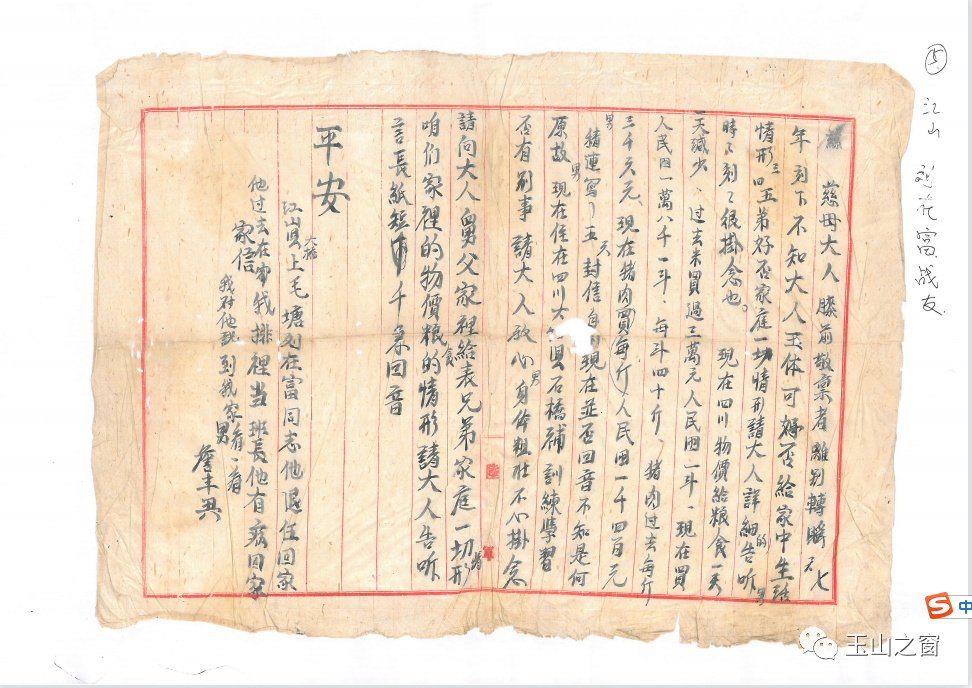 慈母大人 膝前敬禀者 離别轉瞬 七
年 刻下不知大人玉体可好否給家中生活
情形三四五弟好否家庭一切情形請大人詳細的告听男
時々刻々很掛念也。現在四川物價給粮食一天
一天減少、过去米買過三萬元人民田一斗、現在買
人民田一萬八千一斗、每斗四十斤、猪肉过去每斤
三千六元、現在猪肉買每斤人民田一千四百元
男 緒連寫了五六封信 現在並否回音不知是何
原故 男現在住在四川大 県石橋補訓練學習
否有别事 請大人放心男身体粗壮不心掛念
請向大人舅父家裡給表兄弟家庭一切形
咱们家裡的物價粮食的情形請大人告听
言長紙短 千 回音
平安
江山県大橋上毛塘 在富同志他退任回家
他过去在 我排裡当班長他有病回家
家信 我对他説到我家看一看
男 詹丰興
⑤ 江山 富战友
玉山之窗
中